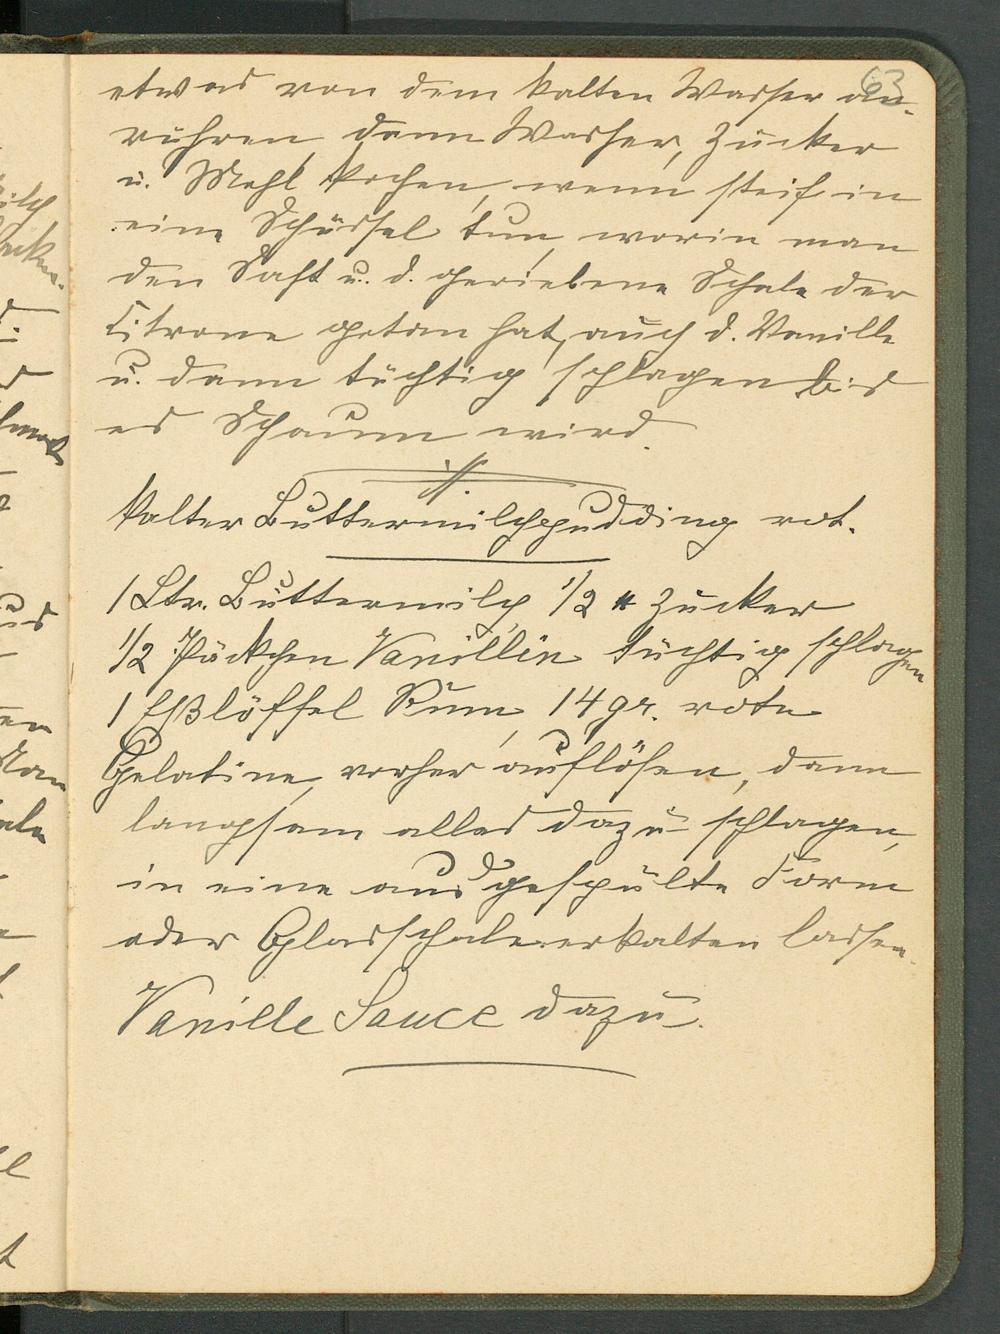 63
etwas von dem kalten Wasser an-
rühren dann Wasser, Zucker
u. Mehl kochen, wenn steif in
eine Schüssel tun, worin man
den Saft u. d. geriebene Schale der
Citrone getan hat, auch d. Vanille
u. dann tüchtig schlagen bis
es Schaum wird.
Kalter Buttermilchpudding rot.
1 Ltr. Buttermilch, 1/2 Zucker
1/2 Päckchen Vanillin tüchtig schlagen
1 Eßlöffel Rum, 14 gr. rote
Gelatine, vorher auflösen, dann
langsam alles dazu schlagen,
in eine ausgespülte Form
oder Glasschale erkalten lassen.
Vanille Sauce dazu.